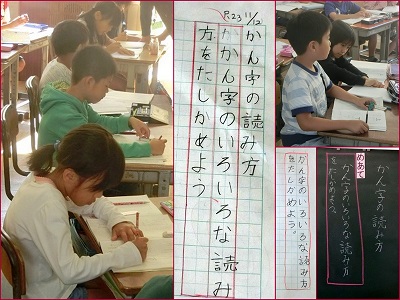 11/12
P.23
かん字の読み方
かん字のいろいろな読み
方をたしかめよう。
かん字の読み方
めあて
かん字のいろいろな読み方
をたしかめよう。
かん字のいろいろな読み方
をたしかめよう。